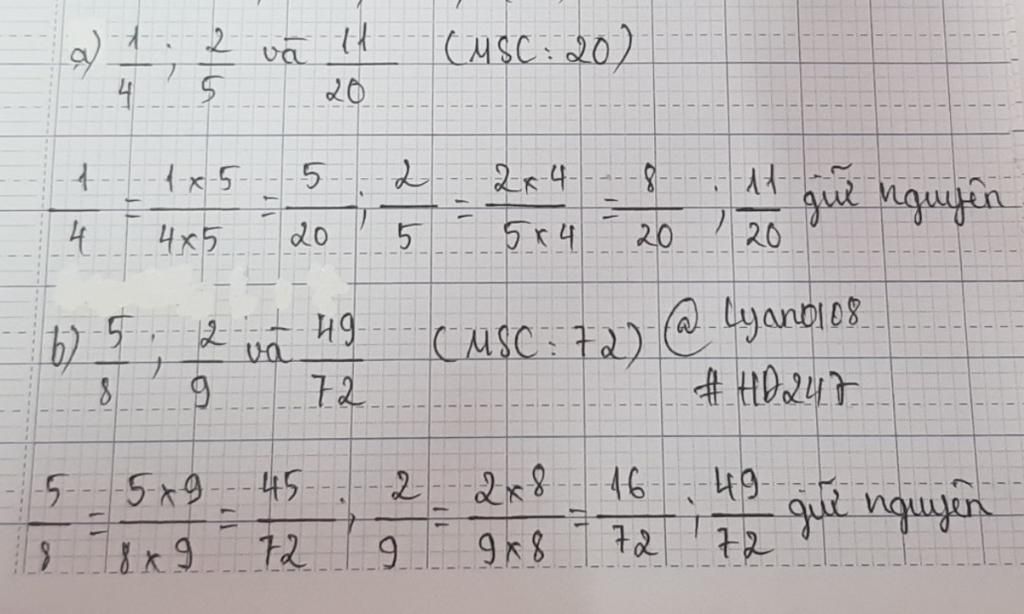 a) 1/4 ; 2/5 và 11/20 (MSC : 20)
1/4 = 1 x 5/4 x 5 = 5/20 ; 2/5 = 2 x 4/5 x 4 = 8/20 ; 11/20 giữ nguyên
b) 5/8 ; 2/9 và 49/72 (MSC : 72) @ Lyano108
# HD247
5/8 = 5 x 9/8 x 9 = 45/72 ; 2/9 = 2 x 8/9 x 8 = 16/72 ; 49/72 giữ nguyên